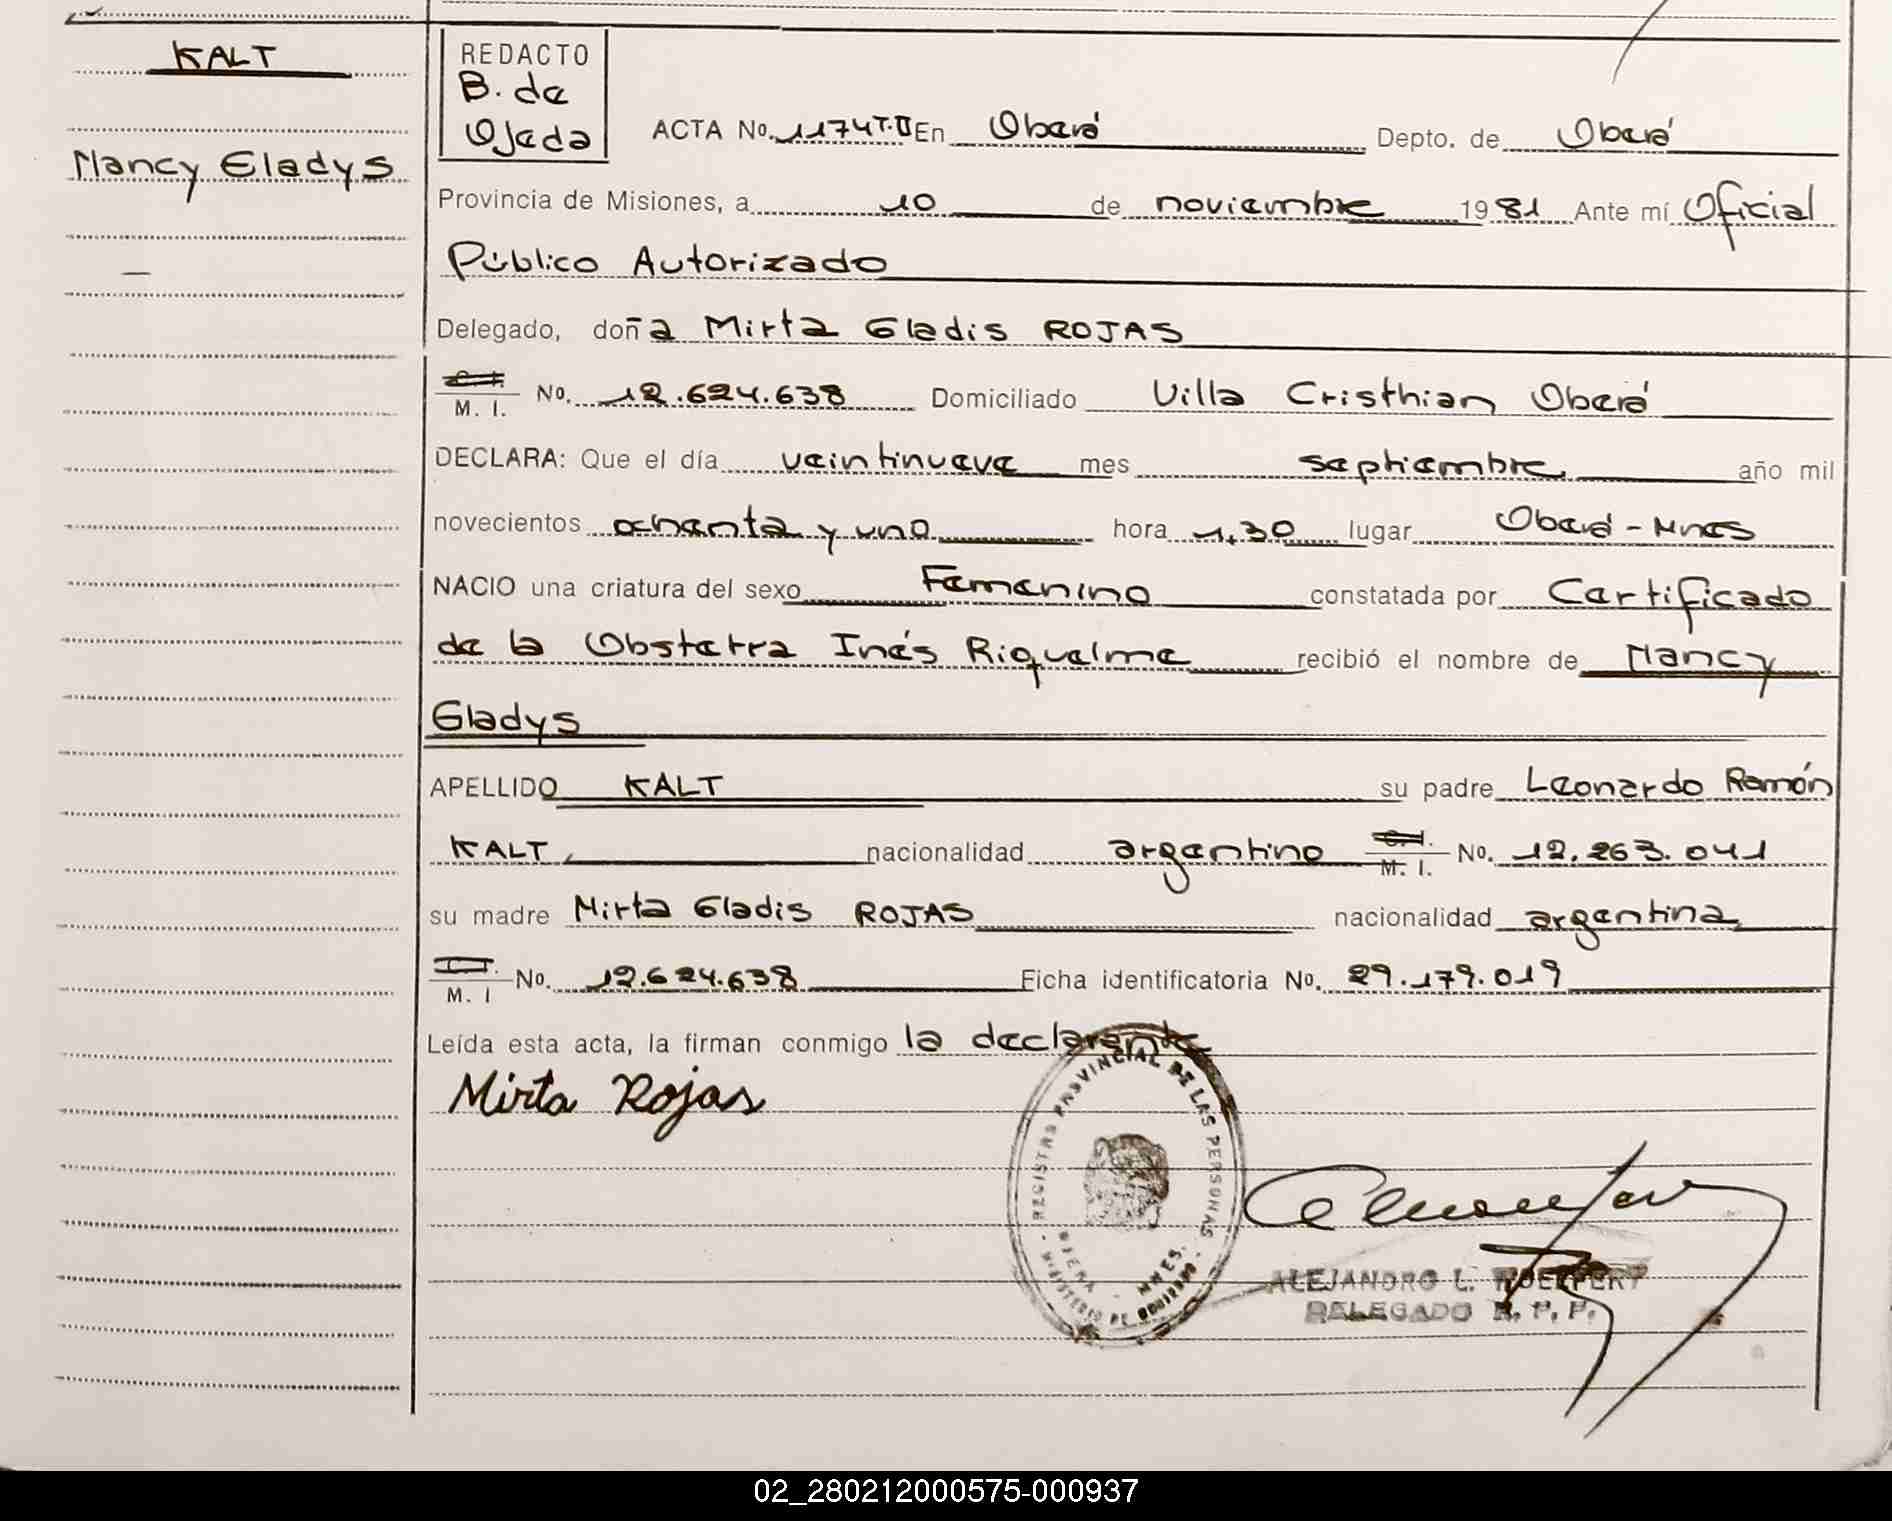 KALT
Nancy Gladys
—
REDACTO
B. de
Ojeda
ACTA No. 1174 T.II En Oberá Depto. de Oberá
Provincia de Misiones, a 10 de noviembre 1981 Ante mí Oficial
Público Autorizado
Delegado, doña Mirta Gladis ROJAS
C. I. / M. I. No. 12.624.638 Domiciliado Villa Cristhian Oberá
DECLARA: Que el día veintinueve mes septiembre año mil
novecientos ochenta y uno hora 1,30 lugar Oberá - Mnes
NACIO una criatura del sexo Femenino constatada por Certificado
de la Obstetra Inés Riquelme recibió el nombre de Nancy
Gladys
APELLIDO KALT su padre Leonardo Ramón
KALT, nacionalidad argentino C. I. / M. I. No. 12.263.041
su madre Mirta Gladis ROJAS nacionalidad argentina
M. I No. 12.624.638 Ficha identificatoria No. 29.179.019
Leída esta acta, la firman conmigo la declarante
Mirta Rojas
REGISTRO PROVINCIAL DE LAS PERSONAS
MINISTERIO DE GOBIERNO
MNES.
ALEJANDRO L.
DELEGADO R. P. P.
02_280212000575-000937